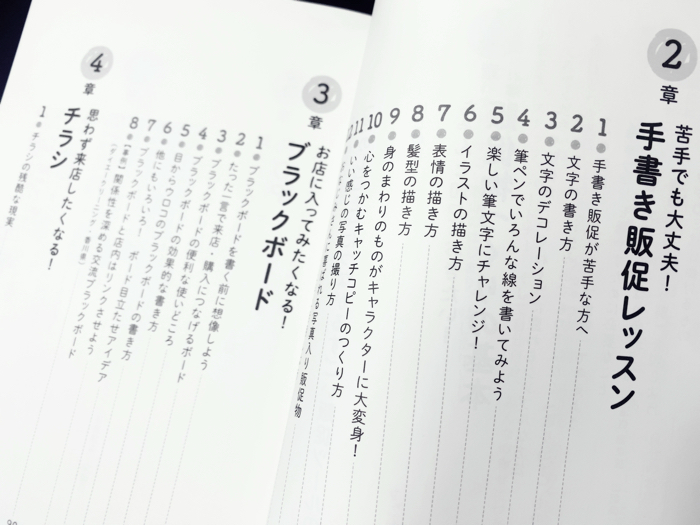 2
章
苦手でも大丈夫！
手書き販促レッスン
1 手書き販促が苦手な方へ
2 文字の書き方
3 文字のデコレーション
4 筆ペンでいろんな線を書いてみよう
5 楽しい筆文字にチャレンジ！
6 イラストの描き方
7 表情の描き方
8 髪型の描き方
9 身のまわりのものがキャラクターに大変身！
10 心をつかむキャッチコピーのつくり方
11 いい感じの写真の撮り方
写真入り販促物
3
章
お店に入ってみたくなる！
ブラックボード
1 ブラックボードを書く前に想像しよう
2 たった一言で来店・購入につなげるボード
3 ブラックボードの便利な使いどころ
4 ブラックボードの効果的な書き方
5 目からウロコのブラックボード
6 他にもいろいろ ボードの書き方
7 ブラックボードと店内はリンクさせよう
8 【事例】関係性を深める交流ブラックボード
4
章
思わず来店したくなる！
チラシ
1 チラシの残酷な現実